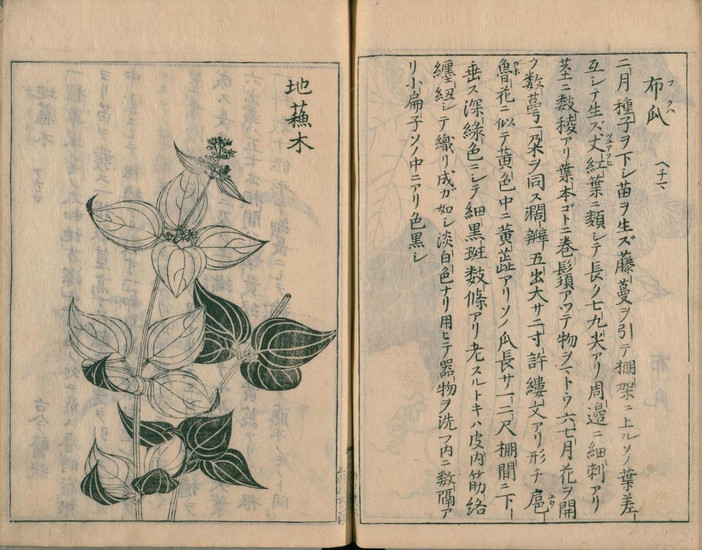 布瓜 フクハ ヘチマ
二月種子ヲ下シ苗ヲ生ズ藤蔓ヲ引テ棚架ニ上ルソノ葉差
互シテ生ズ丈紅葉ニ類シテ長ク七九尖アリ周邉ニ細刺アリ
茎ニ數稜アリ葉本ゴトニ巻鬚アツテ物ヲマトウ六七月花ヲ開
ク數萼一朶ヲ同ス濶瓣五出大サ二寸許縷文アリ形チ
魯花ニ似テ黄色中ニ黄蕋アリソノ瓜長サ一二尺棚間ニ下
垂ス深緑色ニシテ細黒斑數條アリ老スルトキハ皮内筋絡
纏紐シテ織リ成カ如シ淡白色ナリ用ヒテ器物ヲ洗フ内ニ數隔ア
リ小扁子ソノ中ニアリ色黒シ
地蘓木